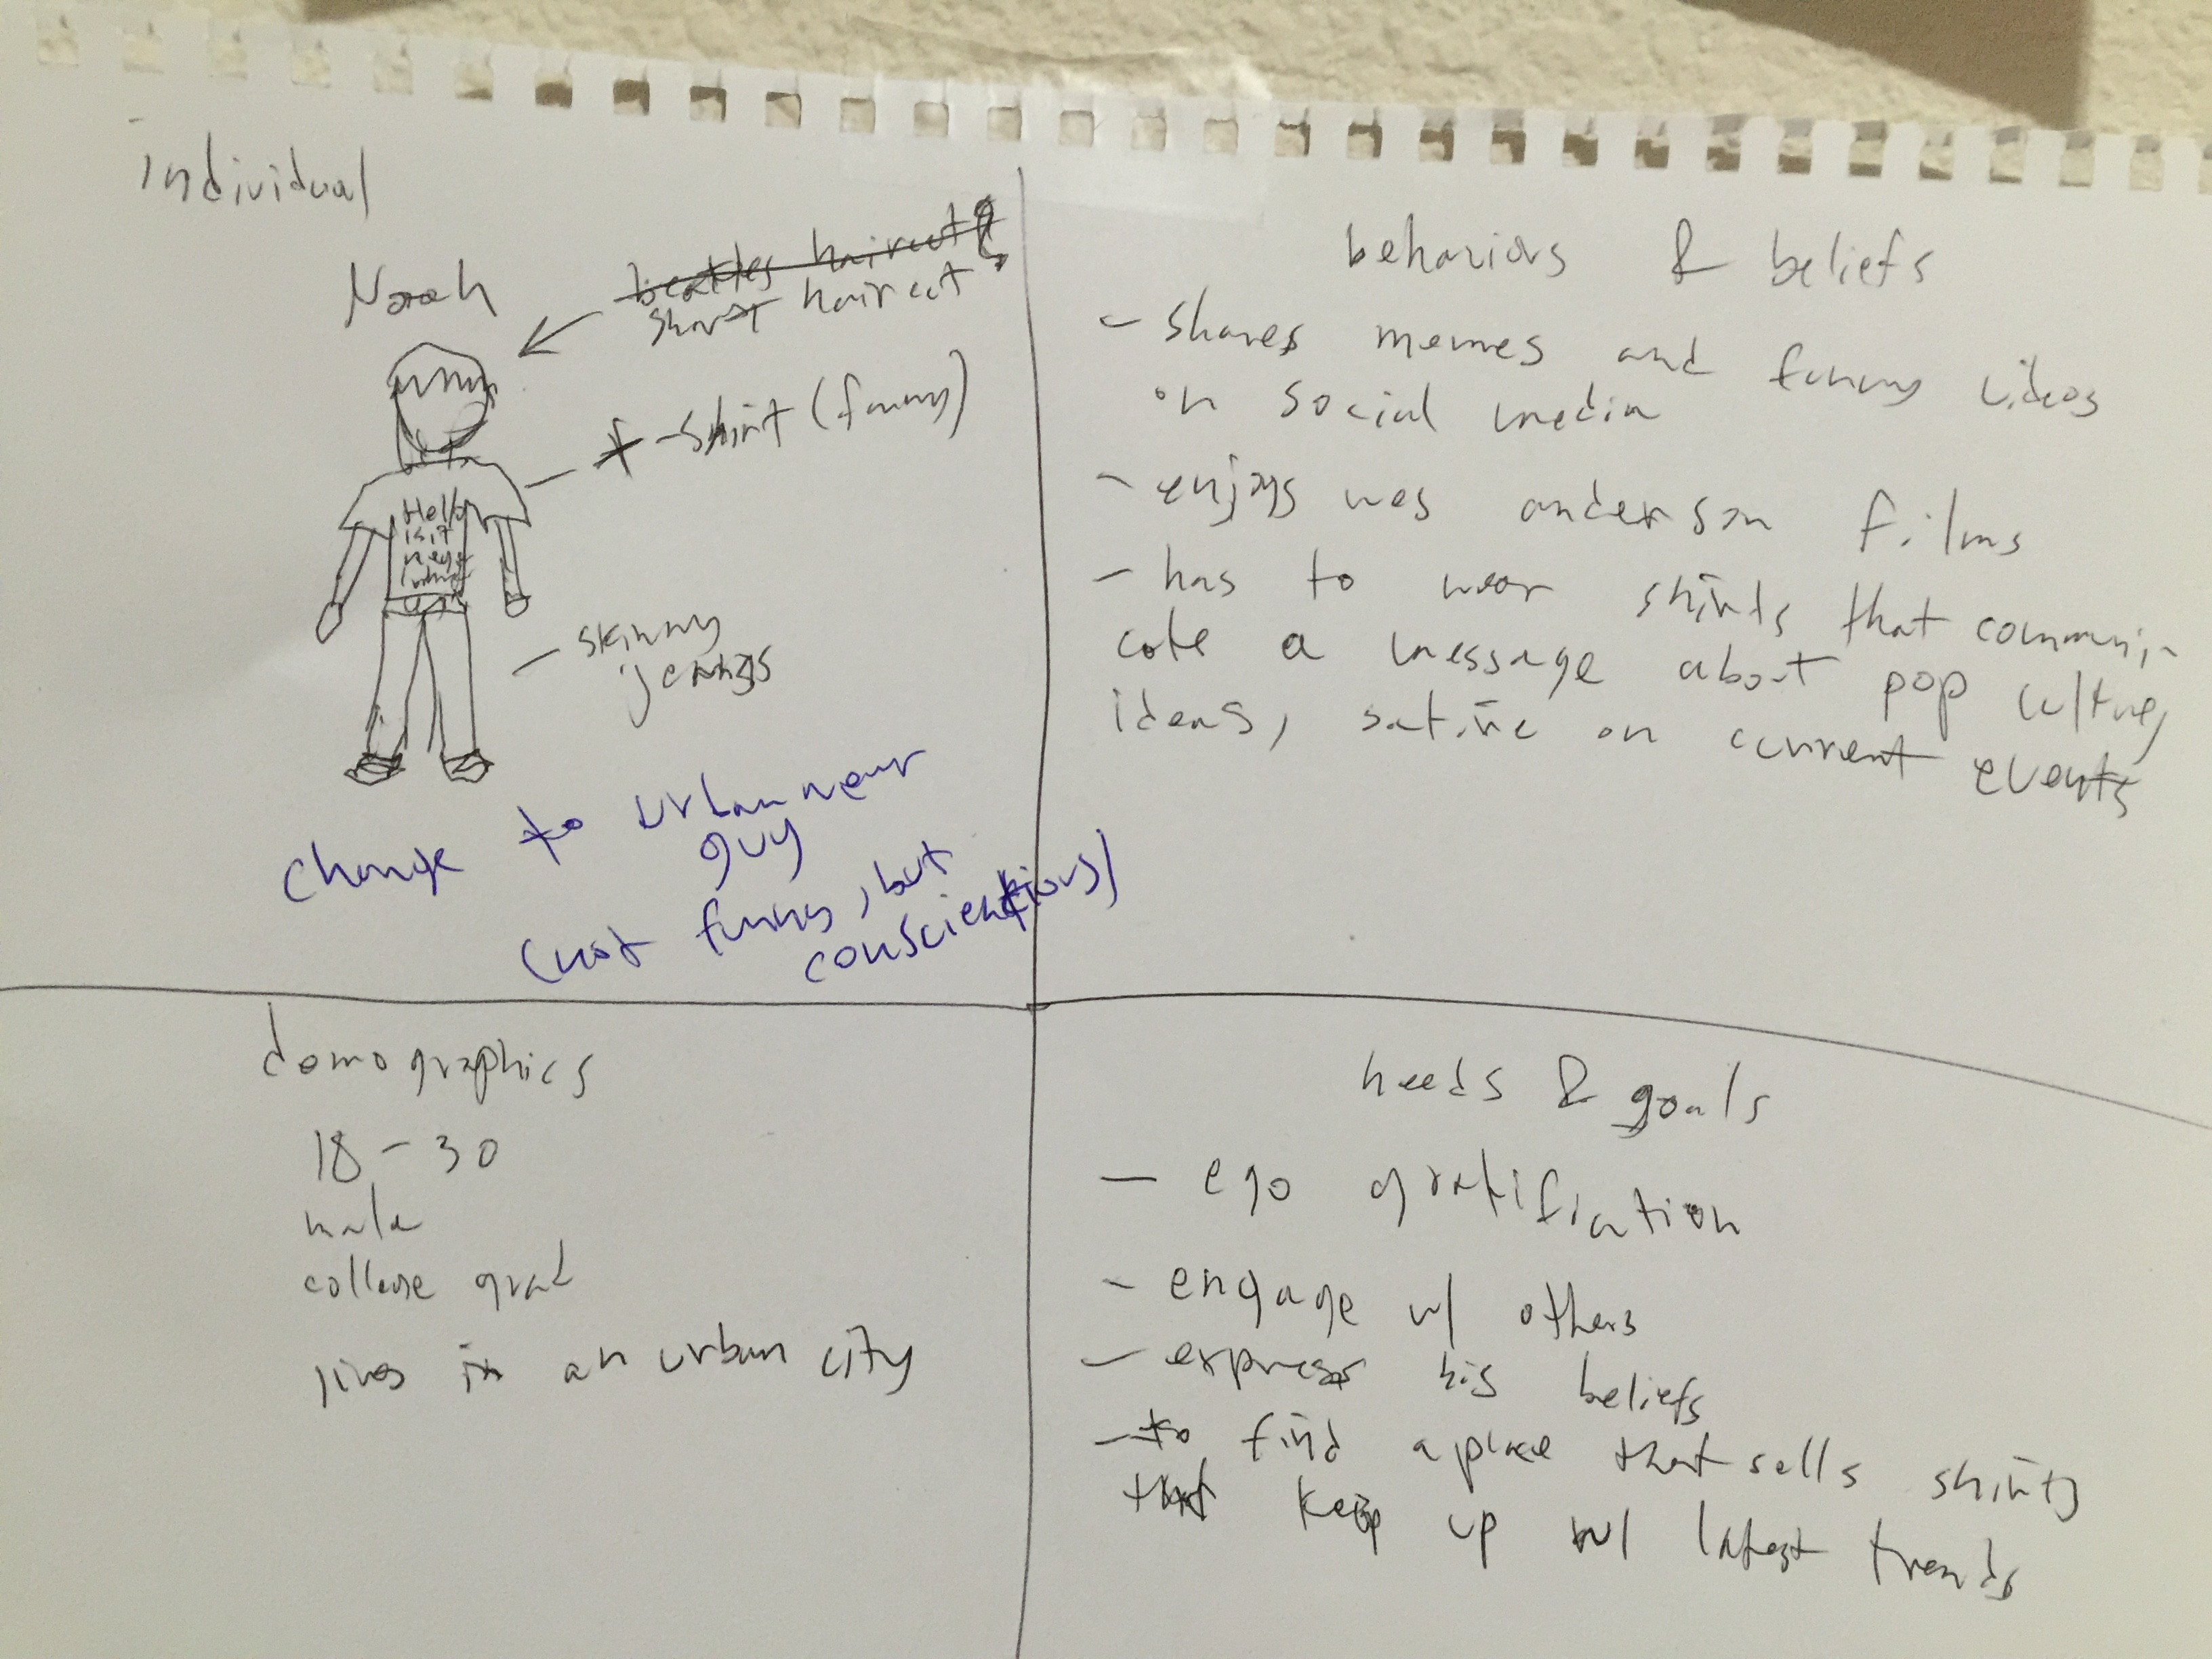 individual
Noah
beatles haircut
short haircut
t-shirt (funny)
Hello
is it
me you
skinny
jeans
change to urbanwear
guy
(not funny, but
conscientious)
behaviors & beliefs
- shares memes and funny videos
on social media
- enjoys wes anderson films
- has to wear shirts that communi-
cate a message about pop culture,
ideas, satire on current events
demographics
18-30
male
college grad
lives in an urban city
needs & goals
- ego gratifiation
- engage w/ others
- express his beliefs
- to find a place that sells shirts
that keep up w/ latest trends